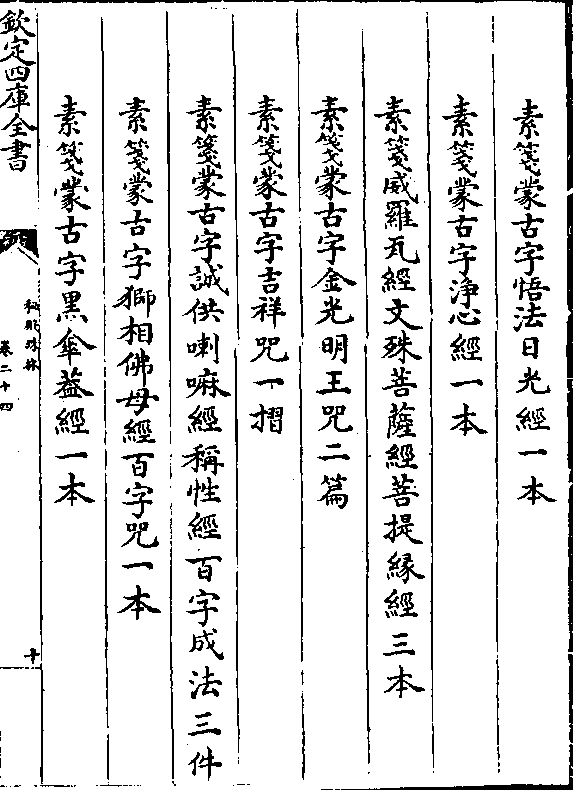 素箋蒙古字悟法日光經一本
素箋蒙古字淨心經一本
素箋威羅瓦經文殊菩薩經菩提緣經三本
素箋蒙古字金光明王咒二篇
素箋蒙古字吉祥咒一摺
素箋蒙古字誠供喇嘛經稱性經百字成法三件
素箋蒙古字獅相佛母經百字咒一本
素箋蒙古字黑傘葢經一本
欽定四庫全書
秘殿珠林
卷二十四
十